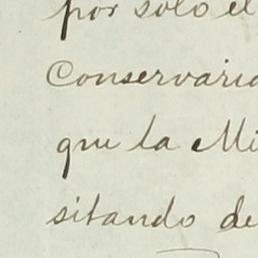 por solo el
Conservario
que la Mi
sitando de